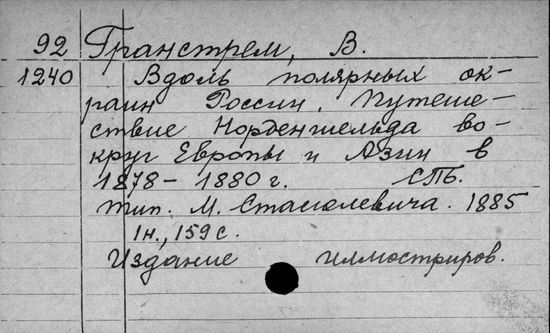 92 Гранстрем, В.
1240 Вдоль полярных ок-
раин России. Путеше-
ствие Норденшельда во-
круг Европы и Азии в
1878 – 1880 г. СПБ.
тип. М. Стасюлевича. 1885
1н., 159 с.
Издание иллюстриров.